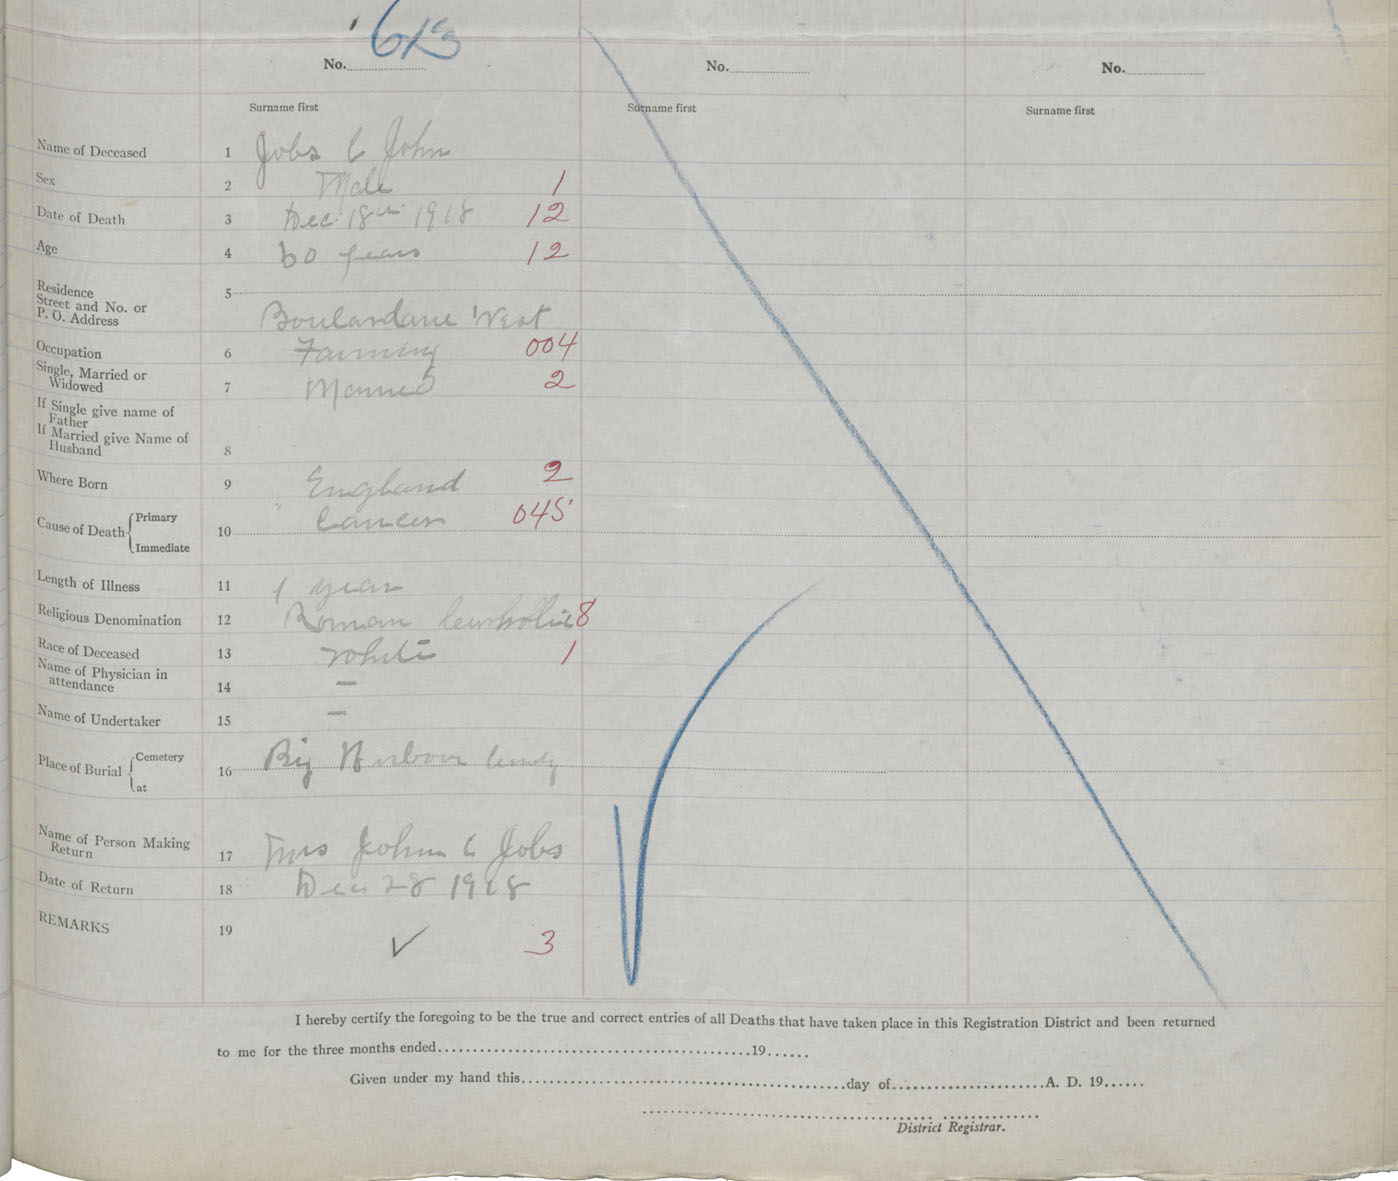 613
No.............. No.............. No..............
Surname first Surname first Surname first
Name of Deceased 1 Jobs C John
Sex 2 Male 1
Date of Death 3 Dec. 18th 1918 12
Age 4 60 years 12
Residence
Street and No. or
P. O. Address
5
Boulardarie West
Occupation 6 Farming 004
Single, Married or
Widowed
7 Married 2
If Single give name of
Father
If Married give Name of
Husband
8
Where Born 9 England 2
Cause of Death { Primary
Immediate
10 Cancer 045
Length of Illness 11 1 year
Religious Denomination 12 Roman 8
Race of Deceased 13 White 1
Name of Physician in
attendance
14 —
Name of Undertaker 15 —
Place of Burial { Cemetery
at
16 Big Harbour
Name of Person Making
Return
17 Mrs John C Jobs
Date of Return 18 Dec 28 1918
REMARKS 19 ✓ 3
I hereby certify the foregoing to be the true and correct entries of all Deaths that have taken place in this Registration District and been returned
to me for the three months ended..............................................19......
Given under my hand this................................................day of......................A. D. 19......
District Registrar.